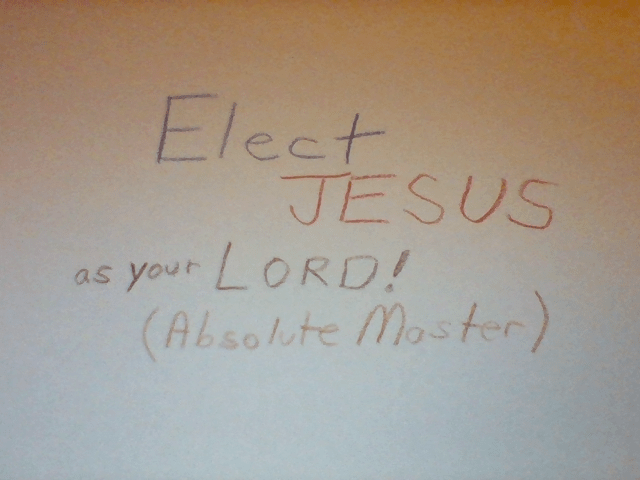 Elect
JESUS
as your LORD!
(Absolute Master)